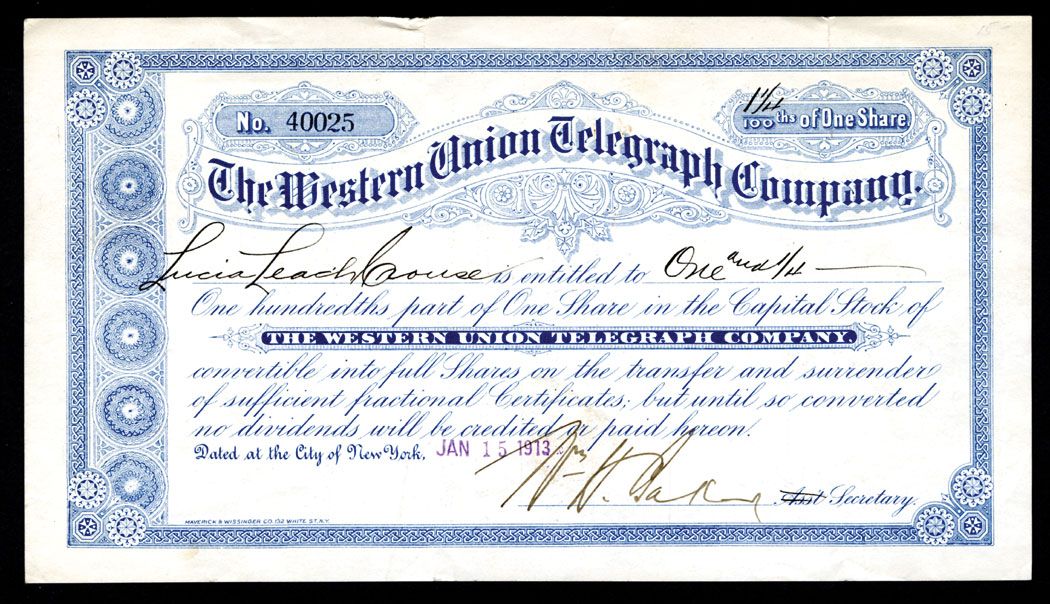 No. 40025
1 1/4
100ths of One Share
The Western Union Telegraph Company.
Lucia Leach Crouse is entitled to One and 1/4
One hundredths part of One Share in the Capital Stock of
THE WESTERN UNION TELEGRAPH COMPANY.
convertible into full Shares on the transfer and surrender
of sufficient fractional Certificates; but until so converted
no dividends will be credited or paid hereon.
Dated at the City of New York, JAN 15 1913
Wm H. Baker
Asst Secretary.
MAVERICK & WISSINGER CO. 132 WHITE ST. N.Y.